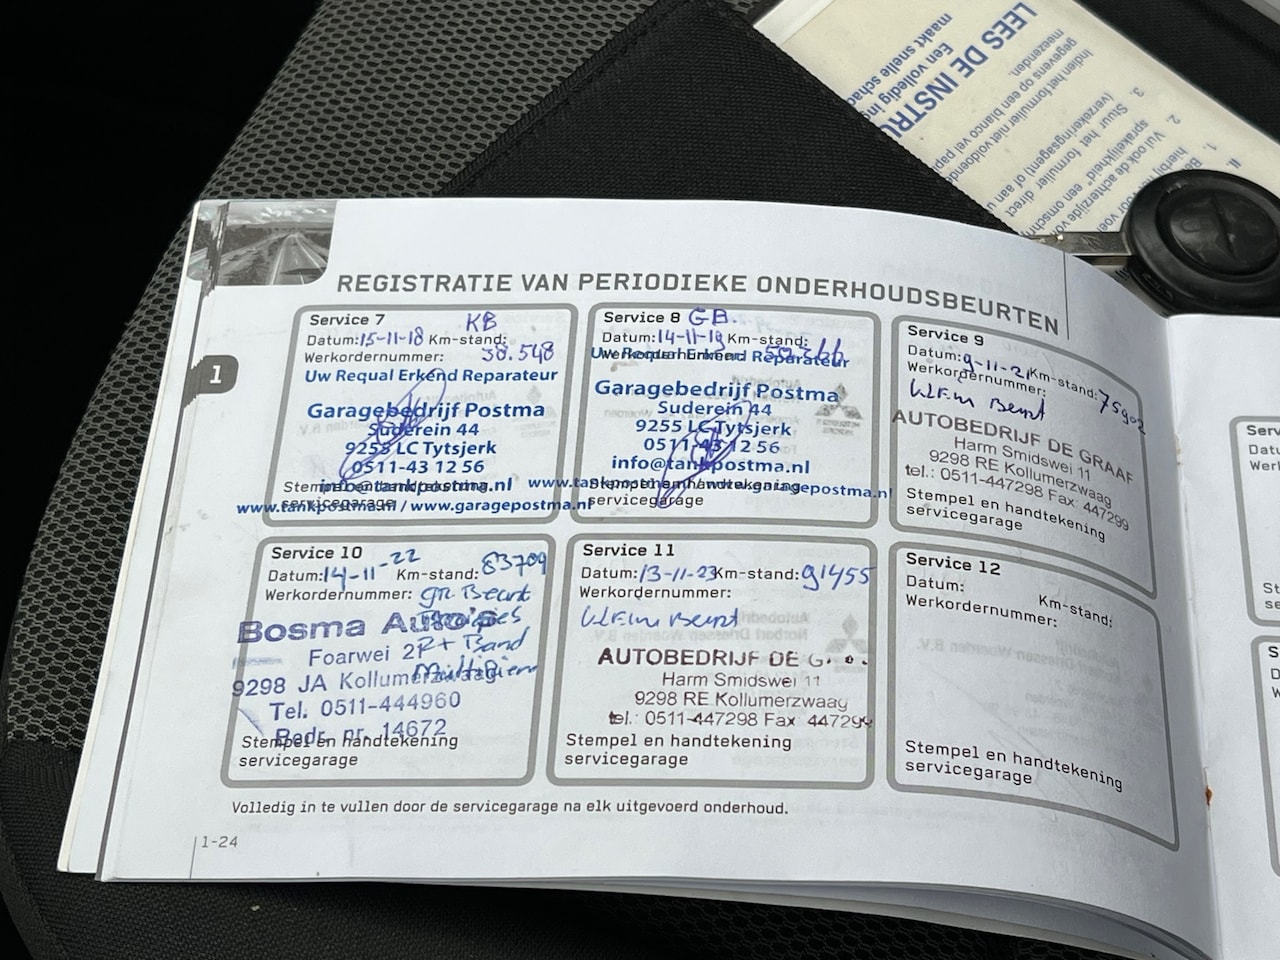 LEES DE INSTRU
Een volledig in
maakt snelle schad
Indien het formulier niet voldoende
gegevens op een blanco vel pap
meezenden.
3. Stuur het formulier direct
(verzekeringsagent) of aan u
2. Vul ook de achterzijde vo
sprakelijkheid" een omschrij
1.
II.
1
REGISTRATIE VAN PERIODIEKE ONDERHOUDSBEURTEN
Service 7 KB
Datum: 15-11-18 Km-stand:
Werkordernummer: 38.548
Uw Requal Erkend Reparateur
Garagebedrijf Postma
Suderein 44
9255 LC Tytsjerk
0511-43 12 56
info@tankpostma.nl
Stempel en handtekening
servicegarage
www.tankpostma.nl / www.garagepostma.nl
Service 8 GB.
Datum: 14-11-19 Km-stand:
Werkordernummer:
Uw Requal Erkend Reparateur
Garagebedrijf Postma
Suderein 44
9255 LC Tytsjerk
0511-43 12 56
info@tankpostma.nl
www.tankpostma.nl / www.garagepostma.nl
Stempel en handtekening
servicegarage
Service 9
Datum: 9-11-21 Km-stand: 75902
Werkordernummer:
Kleine Beurt
AUTOBEDRIJF DE GRAAF
Harm Smidswei 11
9298 RE Kollumerzwaag
tel.: 0511-447298 Fax: 447299
Stempel en handtekening
servicegarage
Service 10
Datum: 14-11-22 Km-stand: 83709
Werkordernummer: gr Beurt
Bosma Auto's
Foarwei 2
9298 JA Kollumerzwaag
Tel. 0511-444960
Bedr. nr. 14672
Stempel en handtekening
servicegarage
Service 11
Datum: 13-11-23 Km-stand: 91455
Werkordernummer:
Kleine Beurt
AUTOBEDRIJF DE G
Harm Smidswei 11
9298 RE Kollumerzwaag
tel.: 0511-447298 Fax 447299
Stempel en handtekening
servicegarage
Service 12
Datum: Km-stand:
Werkordernummer:
Stempel en handtekening
servicegarage
Volledig in te vullen door de servicegarage na elk uitgevoerd onderhoud.
1-24
Serv
Datu
Werk
Ste
se